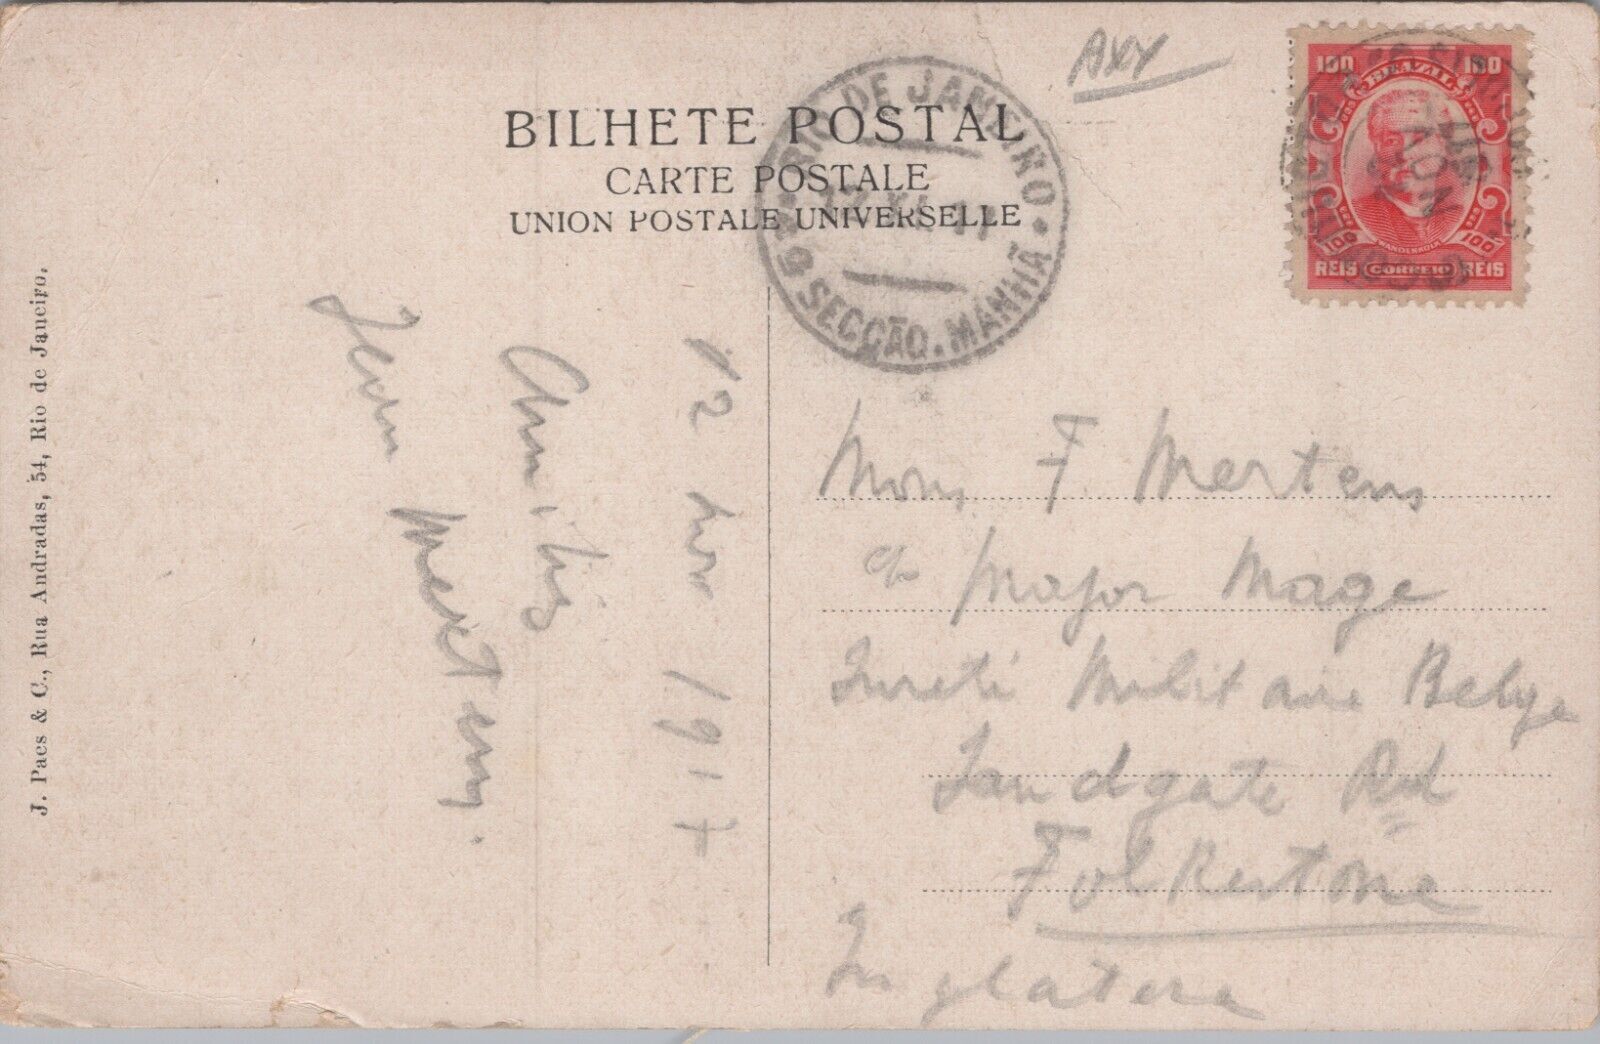 AXY
BILHETE POSTAL
CARTE POSTALE
UNION POSTALE UNIVERSELLE
RIO DE JANEIRO
SECÇÃO. MANHÃ
100 BRAZIL 100
100 WANDENKOLK 100
REIS CORREIO REIS
J. Paes & C., Rua Andradas, 54, Rio de Janeiro.
12 Nov 1917
Amitiés
Jean Mertens.
Mons F. Mertens
c/o Major Mage
Sureté Militaire Belge
Sandgate Rd
Folkestone
Inglatera